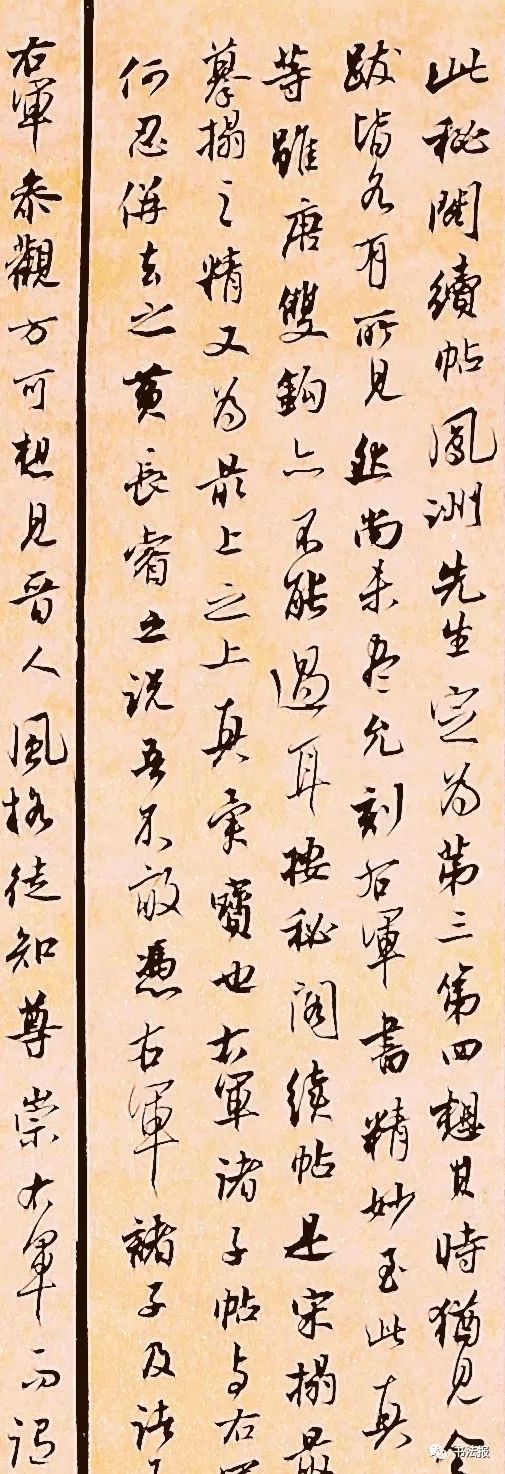 此秘閣續帖鳳洲先生定为第三第四想其時猶見全
跋皆各有所見然尚未盡允刻右軍書精妙至此真
等雖唐雙鈎亦不能過耳按秘閣續帖是宋搨最
摹搨之精又为最上之上真奇寶也右軍諸子帖与右軍
何忍併去之黄長睿之説吾不敢憑右軍諸子及諸
右軍泰觀方可想見晉人風格徒知尊崇右軍而謂
书法报